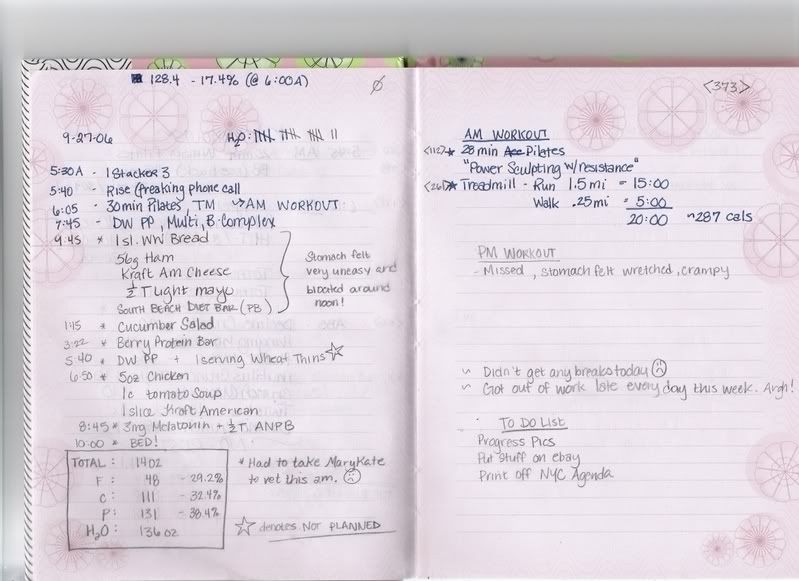 ■ 128.4 - 17.4% (@ 6:00A)
Ø
9-27-06
H₂O: 𝍸 𝍸 𝍸 ||
5:30A - 1 Stacker 3
5:40 - Rise (freaking phone call
6:05 - 30min Pilates, TM → AM WORKOUT
7:45 - DW PP, Multi, B-Complex
9:45 * 1 sl. WW Bread
56g Ham
Kraft Am Cheese
½ T Light mayo
SOUTH BEACH DIET BAR (PB)
Stomach felt
very uneasy and
bloated around
noon!
1:15 * Cucumber Salad
3:22 * Berry Protein Bar
5:40 * DW PP + 1 serving Wheat Thins ☆
6:50 * 5oz Chicken
1c tomato Soup
1 slice Kraft American
8:45 * 3mg Melatonin + ½ T ANPB
10:00 * BED!
TOTAL: 1402
F: 48 - 29.2%
C: 111 - 32.4%
P: 131 - 38.4%
H₂O: 136 oz
* Had to take MaryKate
to vet this am. ☹
☆ denotes NOT PLANNED
<373>
AM WORKOUT
<112> * 28 min Pilates
"Power Sculpting w/resistance"
<261> * Treadmill - Run 1.5 mi = 15:00
Walk .25 mi = 5:00
20:00 ~287 cals
PM WORKOUT
- Missed, stomach felt wretched, crampy
~ Didn't get any breaks today ☹
~ Got out of work late every day this week. Argh!
TO DO LIST
Progress Pics
Put stuff on ebay
Print off NYC Agenda